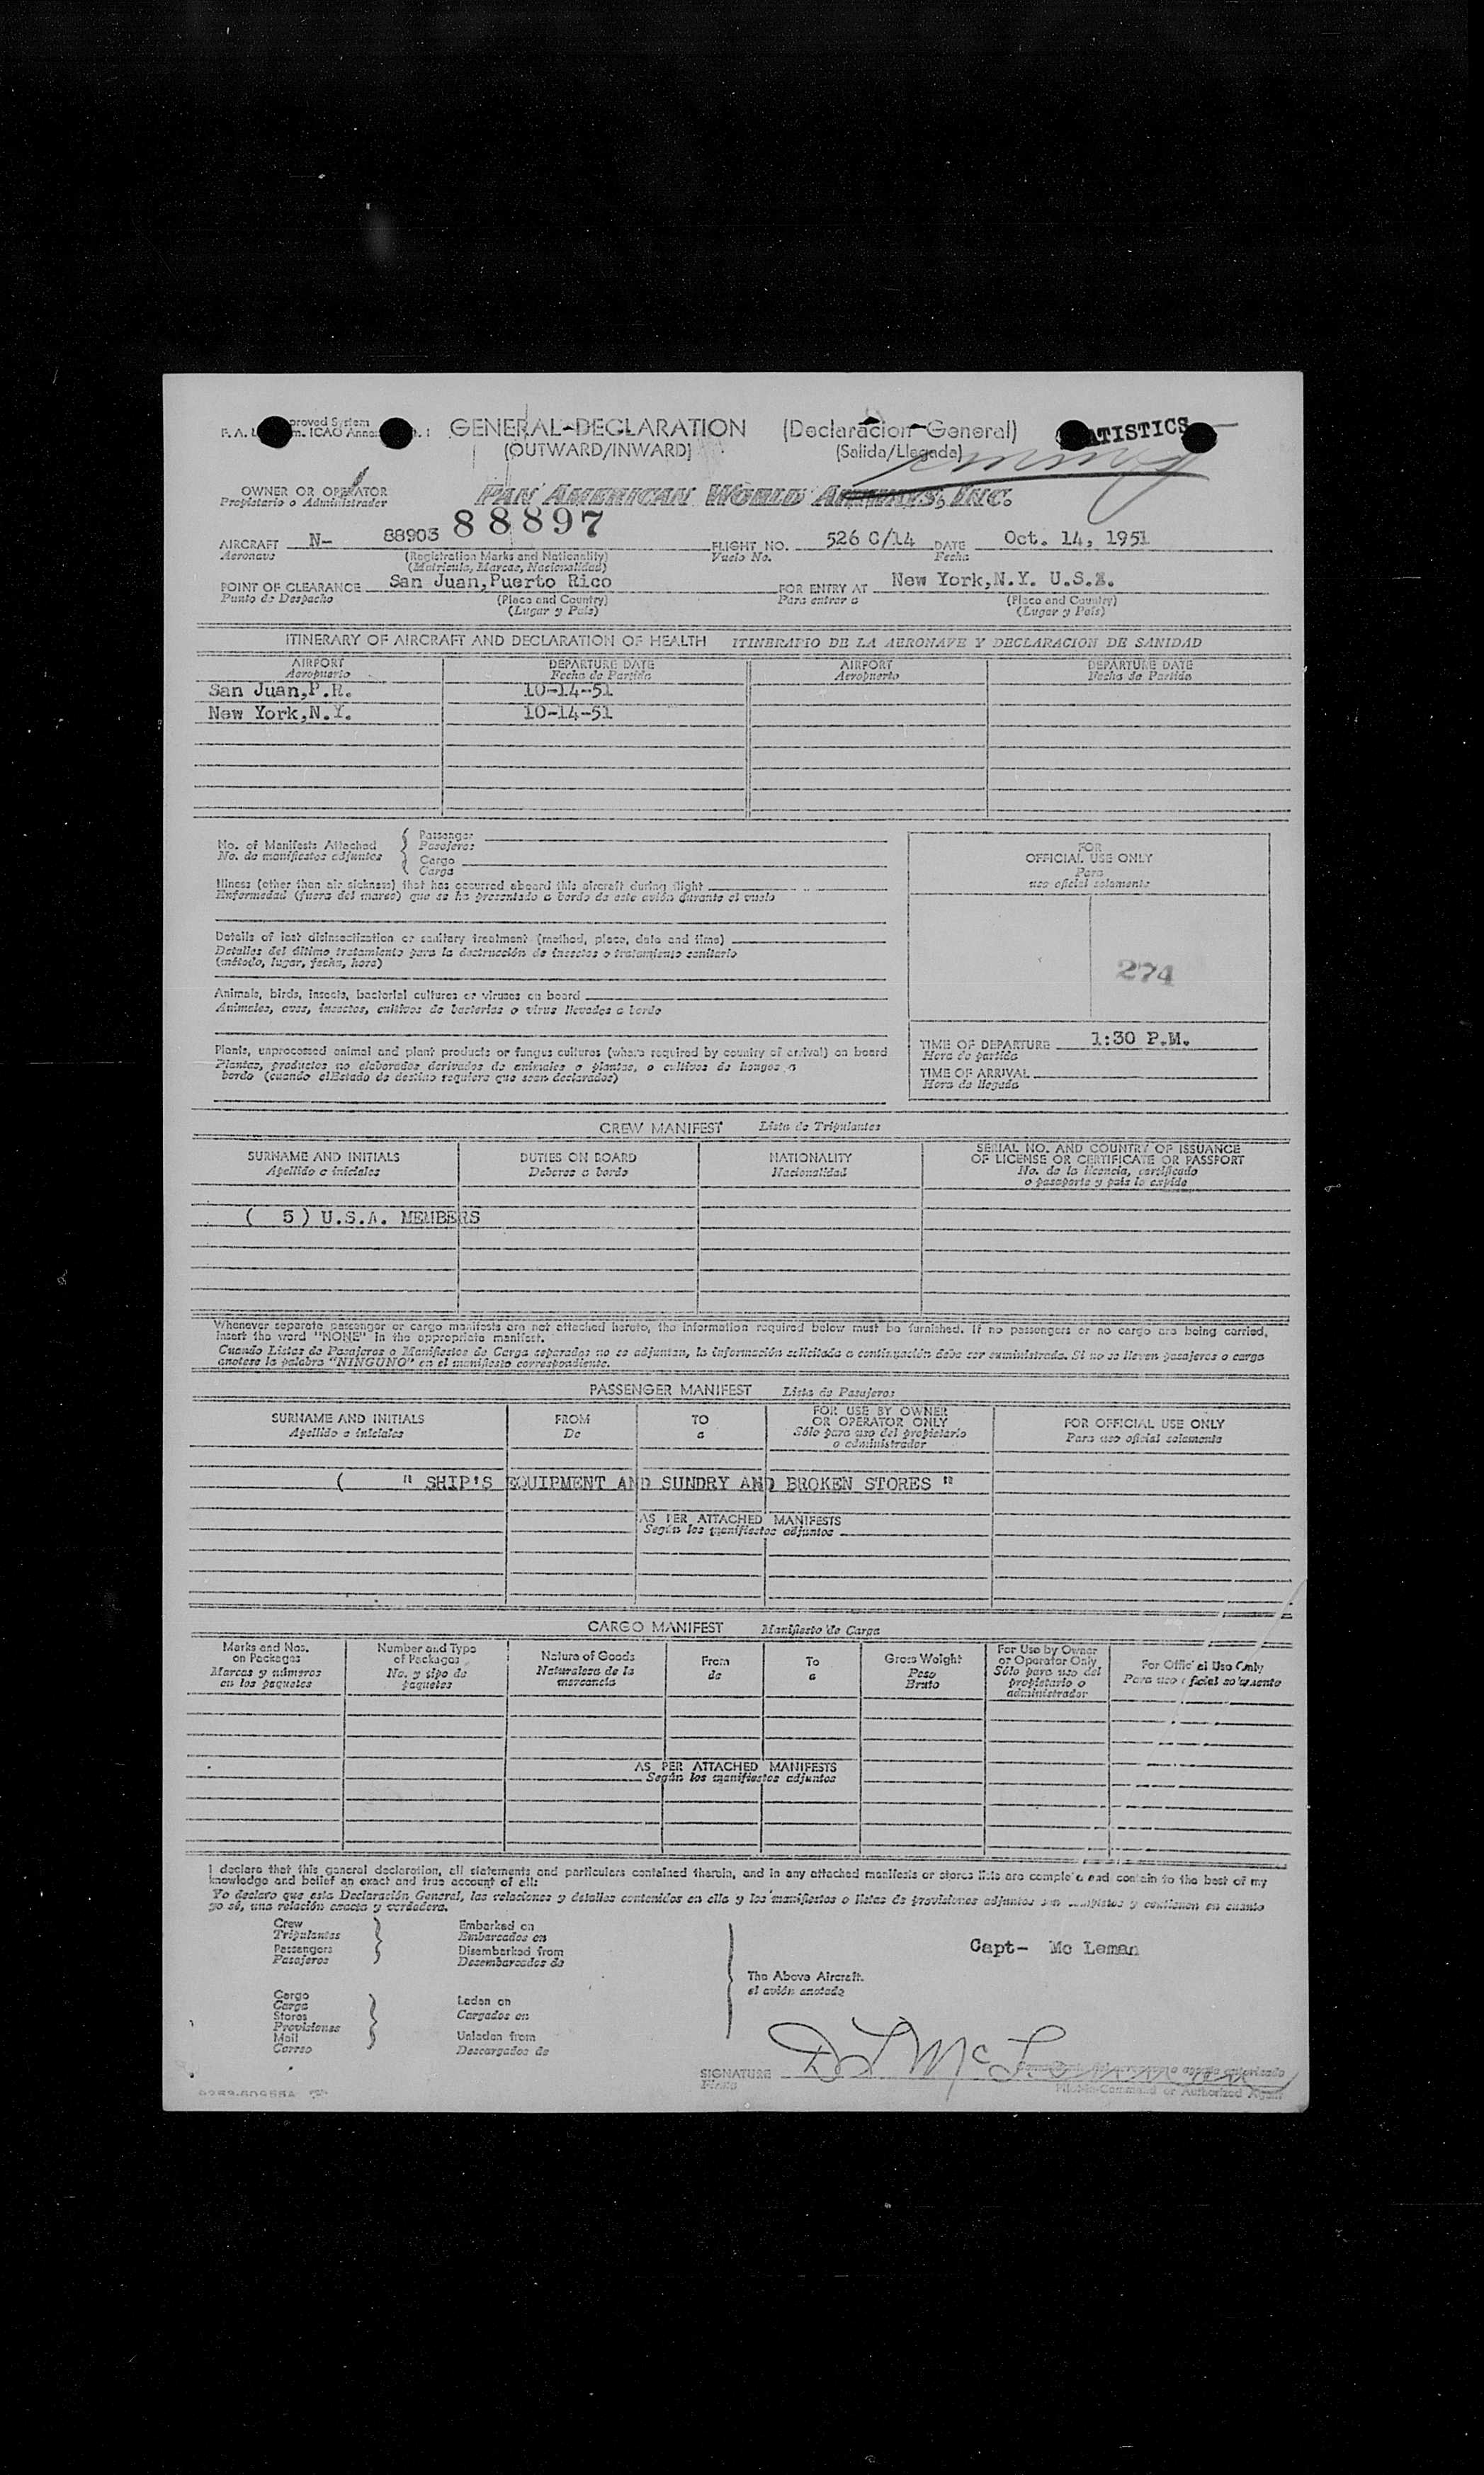 GENERAL DECLARATION (Declaración General) STATISTICS
(OUTWARD/INWARD) (Salida/Llegada)
OWNER OR OPERATOR PAN AMERICAN WORLD AIRWAYS, INC.
Propietario o Administrador
88897
AIRCRAFT N- 88903 FLIGHT NO. 526 C/14 DATE Oct. 14, 1951
Aeronave (Registration Marks and Nationality) Vuelo No. Fecha
(Matricula, Marcas, Nacionalidad)
POINT OF CLEARANCE San Juan, Puerto Rico FOR ENTRY AT New York, N.Y. U.S.A.
Punto de Despacho (Place and Country) Para entrar a (Place and Country)
(Lugar y País) (Lugar y País)
ITINERARY OF AIRCRAFT AND DECLARATION OF HEALTH ITINERARIO DE LA AERONAVE Y DECLARACION DE SANIDAD
AIRPORT DEPARTURE DATE AIRPORT DEPARTURE DATE
Aeropuerto Fecha de Partida Aeropuerto Fecha de Partida
San Juan, P.R. 10-14-51
New York, N.Y. 10-14-51
No. of Manifests Attached
No. de manifiestos adjuntos
Passenger
Pasajeros
Cargo
Carga
Illness (other than air sickness) that has occurred aboard this aircraft during flight
Enfermedad (fuera del mareo) que se ha presentado a bordo de este avión durante el vuelo
Details of last disinsectization or sanitary treatment (method, place, date and time)
Detalles del último tratamiento para la destrucción de insectos o tratamiento sanitario
(método, lugar, fecha, hora)
Animals, birds, insects, bacterial cultures or viruses on board
Animales, aves, insectos, cultivos de bacterias o virus llevados a bordo
Plants, unprocessed animal and plant products or fungus cultures (where required by country of arrival) on board
Plantas, productos no elaborados derivados de animales o plantas, o cultivos de hongos a
bordo (cuando el Estado de destino requiera que sean declarados)
FOR
OFFICIAL USE ONLY
Para
uso oficial solamente
274
TIME OF DEPARTURE 1:30 P.M.
Hora de partida
TIME OF ARRIVAL
Hora de llegada
CREW MANIFEST Lista de Tripulantes
SURNAME AND INITIALS DUTIES ON BOARD NATIONALITY SERIAL NO. AND COUNTRY OF ISSUANCE
OF LICENSE OR CERTIFICATE OR PASSPORT
Apellido e iniciales Deberes a bordo Nacionalidad No. de la licencia, certificado
o pasaporte y país lo expide
( 5 ) U.S.A. MEMBERS
Whenever separate passenger or cargo manifests are not attached hereto, the information required below must be furnished. If no passengers or no cargo are being carried,
insert the word "NONE" in the appropriate manifest.
Cuando Listas de Pasajeros o Manifiestos de Carga separados no se adjuntan, la información solicitada a continuación debe ser suministrada. Si no se llevan pasajeros o carga
anótese la palabra "NINGUNO" en el manifiesto correspondiente.
PASSENGER MANIFEST Lista de Pasajeros
SURNAME AND INITIALS FROM TO FOR USE BY OWNER
OR OPERATOR ONLY FOR OFFICIAL USE ONLY
Apellido e iniciales De a Sólo para uso del propietario
o administrador Para uso oficial solamente
( " SHIP'S EQUIPMENT AND SUNDRY AND BROKEN STORES "
AS PER ATTACHED MANIFESTS
Según los manifiestos adjuntos
CARGO MANIFEST Manifiesto de Carga
Marks and Nos.
on Packages
Marcas y números
en los paquetes
Number and Type
of Packages
No. y tipo de
paquetes
Nature of Goods
Naturaleza de la
mercancía
From
de
To
a
Gross Weight
Peso
Bruto
For Use by Owner
or Operator Only
Sólo para uso del
propietario o
administrador
For Official Use Only
Para uso oficial solamente
AS PER ATTACHED MANIFESTS
Según los manifiestos adjuntos
I declare that this general declaration, all statements and particulars contained therein, and in any attached manifests or stores lists are complete and contain to the best of my
knowledge and belief an exact and true account of all:
Yo declaro que esta Declaración General, las relaciones y detalles contenidos en ella y los manifiestos o listas de provisiones adjuntos son completos y contienen en cuanto
yo sé, una relación exacta y verdadera.
Crew
Tripulantes
Passengers
Pasajeros
Embarked on
Embarcados en
Disembarked from
Desembarcados de
Cargo
Carga
Stores
Provisiones
Mail
Correo
Laden on
Cargados en
Unladen from
Descargados de
The Above Aircraft.
el avión anotado
Capt- Mc Leman
SIGNATURE
Firma
Pilot-in-Command or Authorized Agent